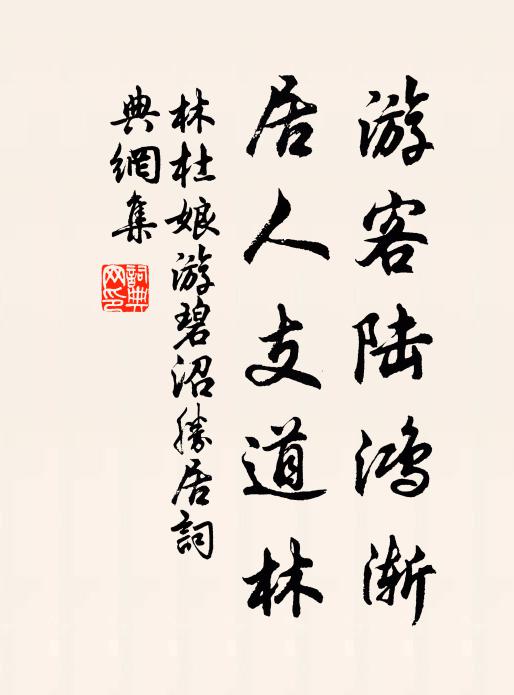 游客陆鸿渐
居人支道林
林杜娘游碧沼勝居詞
典網集
詞典
网印